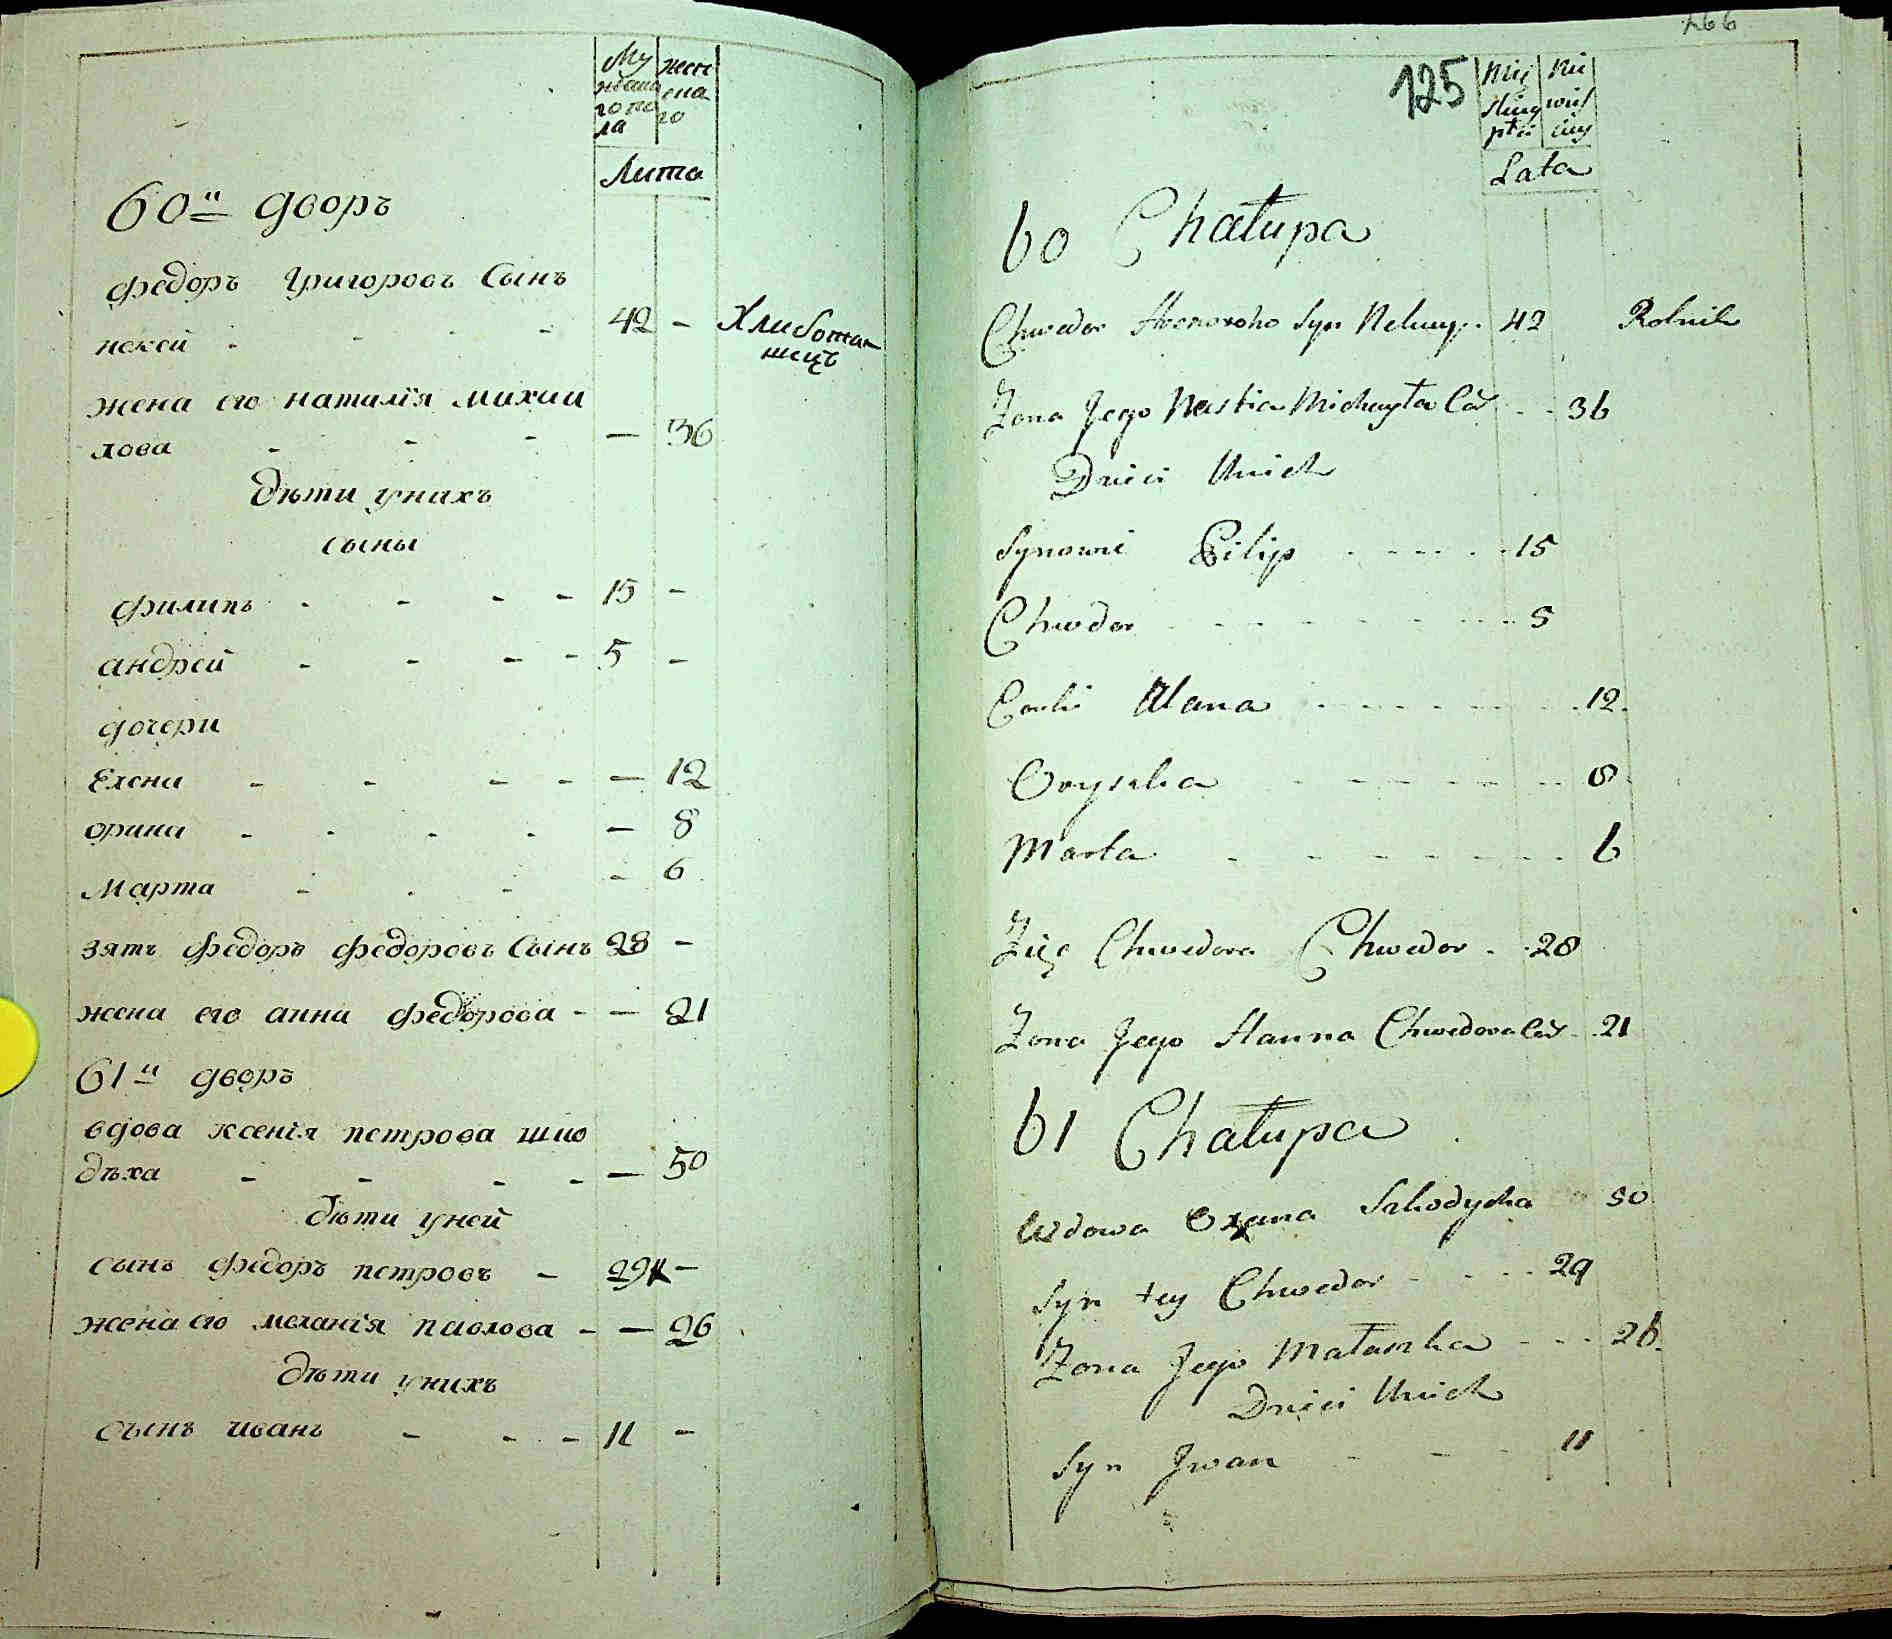 Му
жеска
го по
ла
жен
ска
го
Лита
60й дворъ
федоръ григоровъ Сынъ
некей - - - - 42 - Хлибопа
шецъ
жена его наталія михаи
лова - - - - 36
дѣти унихъ
сыны
филипъ - - - - 15 -
андрей - - - - 5 -
дочери
Елена - - - - - 12
орина - - - - - 8
Марта - - - - 6
зять федоръ федоровъ Сынъ 28 -
жена его анна федорова - - 21
61й дворъ
вдова ксенія петрова шко
дѣха - - - - - 50
дѣти уней
сынъ федоръ петровъ - 29 -
жена его меланія павлова - - 26
дѣти унихъ
сынъ иванъ - - - 11 -
266
125
Lata
60 Chałupa
Chwedor Syn 42 Rolnik
Żona Jego Nastia Michayła Cór. - - 36
Dzieci Unich
Synowie Pilip - - - - - 15
Chwedor - - - - - - - - 5
Corki Ulana - - - - - - - 12
Oryszka - - - - - - - 8
Marta - - - - - - - 6
Zięć Chwedora Chwedor - - 28
Żona Jego Hanna Chwedora Cór. - 21
61 Chałupa
Wdowa Oxana Szkodycha 50
Syn tey Chwedor - - - - 29
Żona Jego Małanka - - - 26
Dzieci Unich
Syn Jwan - - - 11